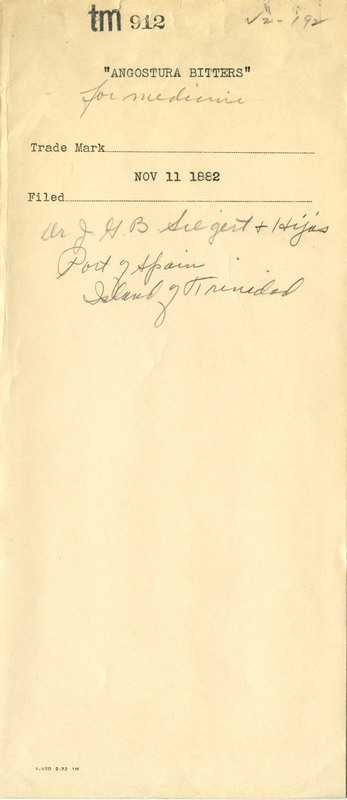 tm 912
"ANGOSTURA BITTERS"
for medicine
Trade Mark
NOV 11 1882
Filed
Dr J. G. B. Siegert + Hijos
Port of Spain
Island of Trinidad